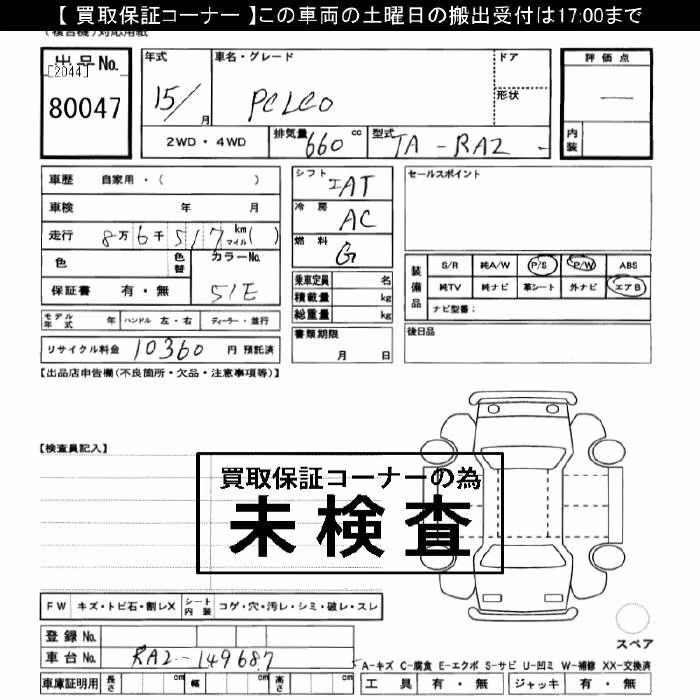 【 買取保証コーナー 】この車両の土曜日の搬出受付は17:00まで
(複合機)対応用紙
出品No.
[2044]
80047
年式 車名・グレード ドア 評価点
15/月 PCLCO 形状 —
2WD・4WD 排気量 660 cc 型式 TA-RA2- 内装
車歴 自家用・( )
車検 年 月
走行 8万6千517 km マイル( )
色 色替 カラーNo. 51E
保証書 有・無
シフト IAT
冷房 AC
燃料 G
乗車定員 名
積載量 kg
総重量 kg
セールスポイント
装備品 S/R 純A/W P/S P/W ABS
純TV 純ナビ 革シート 外ナビ エアB
ナビ型番:
モデル年式 年 ハンドル 左・右 ディーラー・並行
リサイクル料金 10360 円 預託済
書類期限
月 日
後日品
【出品店申告欄(不良箇所・欠品・注意事項等)】
【検査員記入】
買取保証コーナーの為
未検査
FW キズ・トビ石・割レX シート内装 コゲ・穴・汚レ・シミ・破レ・スレ
登録No.
車台No. RA2-149687
スペア
A-キズ C-腐食 E-エクボ S-サビ U-凹ミ W-補修 XX-交換済
車庫証明用 長さ cm 幅 cm 高さ cm
工具 有・無 ジャッキ 有・無